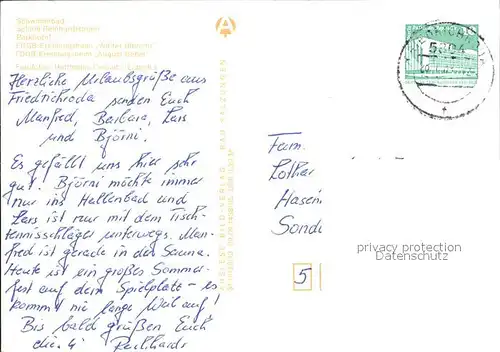 Schwimmbad
FDGB-Erholungsheim "Walter Ulbricht"
FDGB-Erholungsheim "August Bebel"
Herzliche Urlaubsgrüße aus
Friedrichroda senden Euch
Manfred, Barbara, Lars
und Björni.
Es gefällt uns hier sehr
gut. Björni möchte immer
nur ins Hallenbad und
Lars ist nur mit dem Tisch-
tennisschläger unterwegs. Man-
fred ist gerade in der Sauna.
Heute ist ein großes Sommer-
fest auf dem Spielplatz - es
kommt nie lange Weile auf!
Bis bald grüßen Euch
die 4
AUSLESE-BILD-VERLAG · BAD SALZUNGEN
Fam.
Lothar
Hasen
Sonde
5
privacy protection
Datenschutz